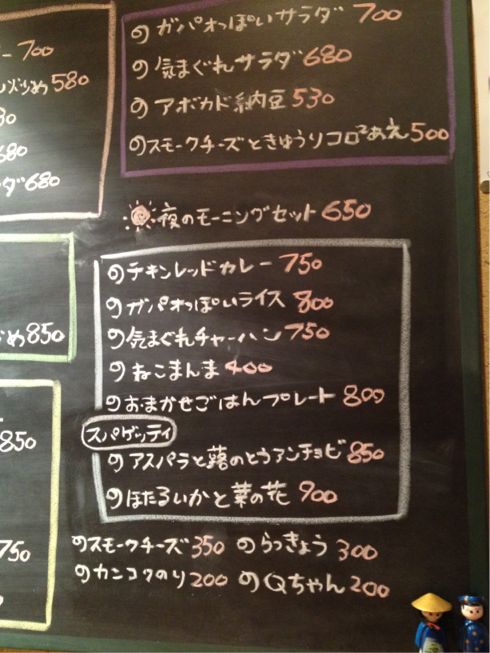 ー 700
し火少め 580
80
680
ダ 680
め 850
850
750
のガパオっぽいサラダ 700
の気まぐれサラダ 680
のアボカド納豆 530
のスモークチーズときゅうりコロ²あえ 500
夜のモーニングセット 650
のチキンレッドカレー 750
のガパオっぽいライス 800
の気まぐれチャーハン 750
のねこまんま 400
のおまかせごはんプレート 800
スパゲッティ
のアスパラと蕗のとうアンチョビ 850
のほたるいかと菜の花 900
のスモークチーズ 350 のらっきょう 300
のカンコクのり 200 のQちゃん 200